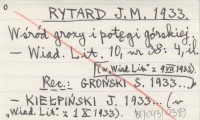 RYTARD J.M. 1933.
Wśród grozy i potęgi górskiej.
— Wiad. Lit. 10, nr 38: 4, il.
[(w „Wiad. Lit." z 1933).
Rec.: GROŃSKI S. 1933...)
— KIEŁPIŃSKI J. 1933... (w
„Wiad. Lit." z 1 X 1933).